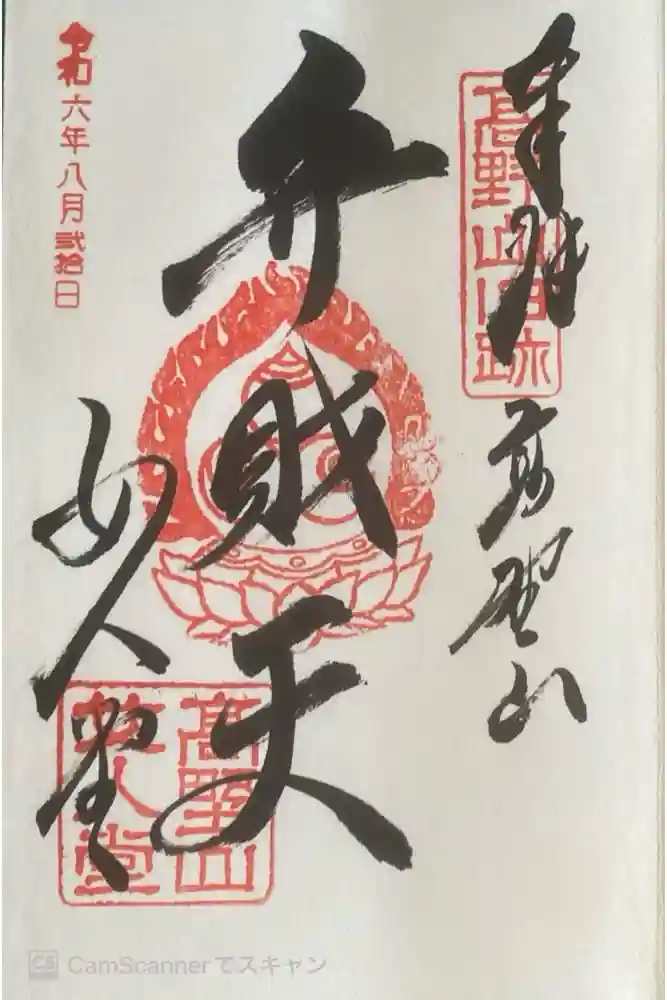 奉拝
高野山
高野山旧跡
弁財天
女人堂
高野山
女人堂
令和六年八月弐拾日
CS CamScannerでスキャン